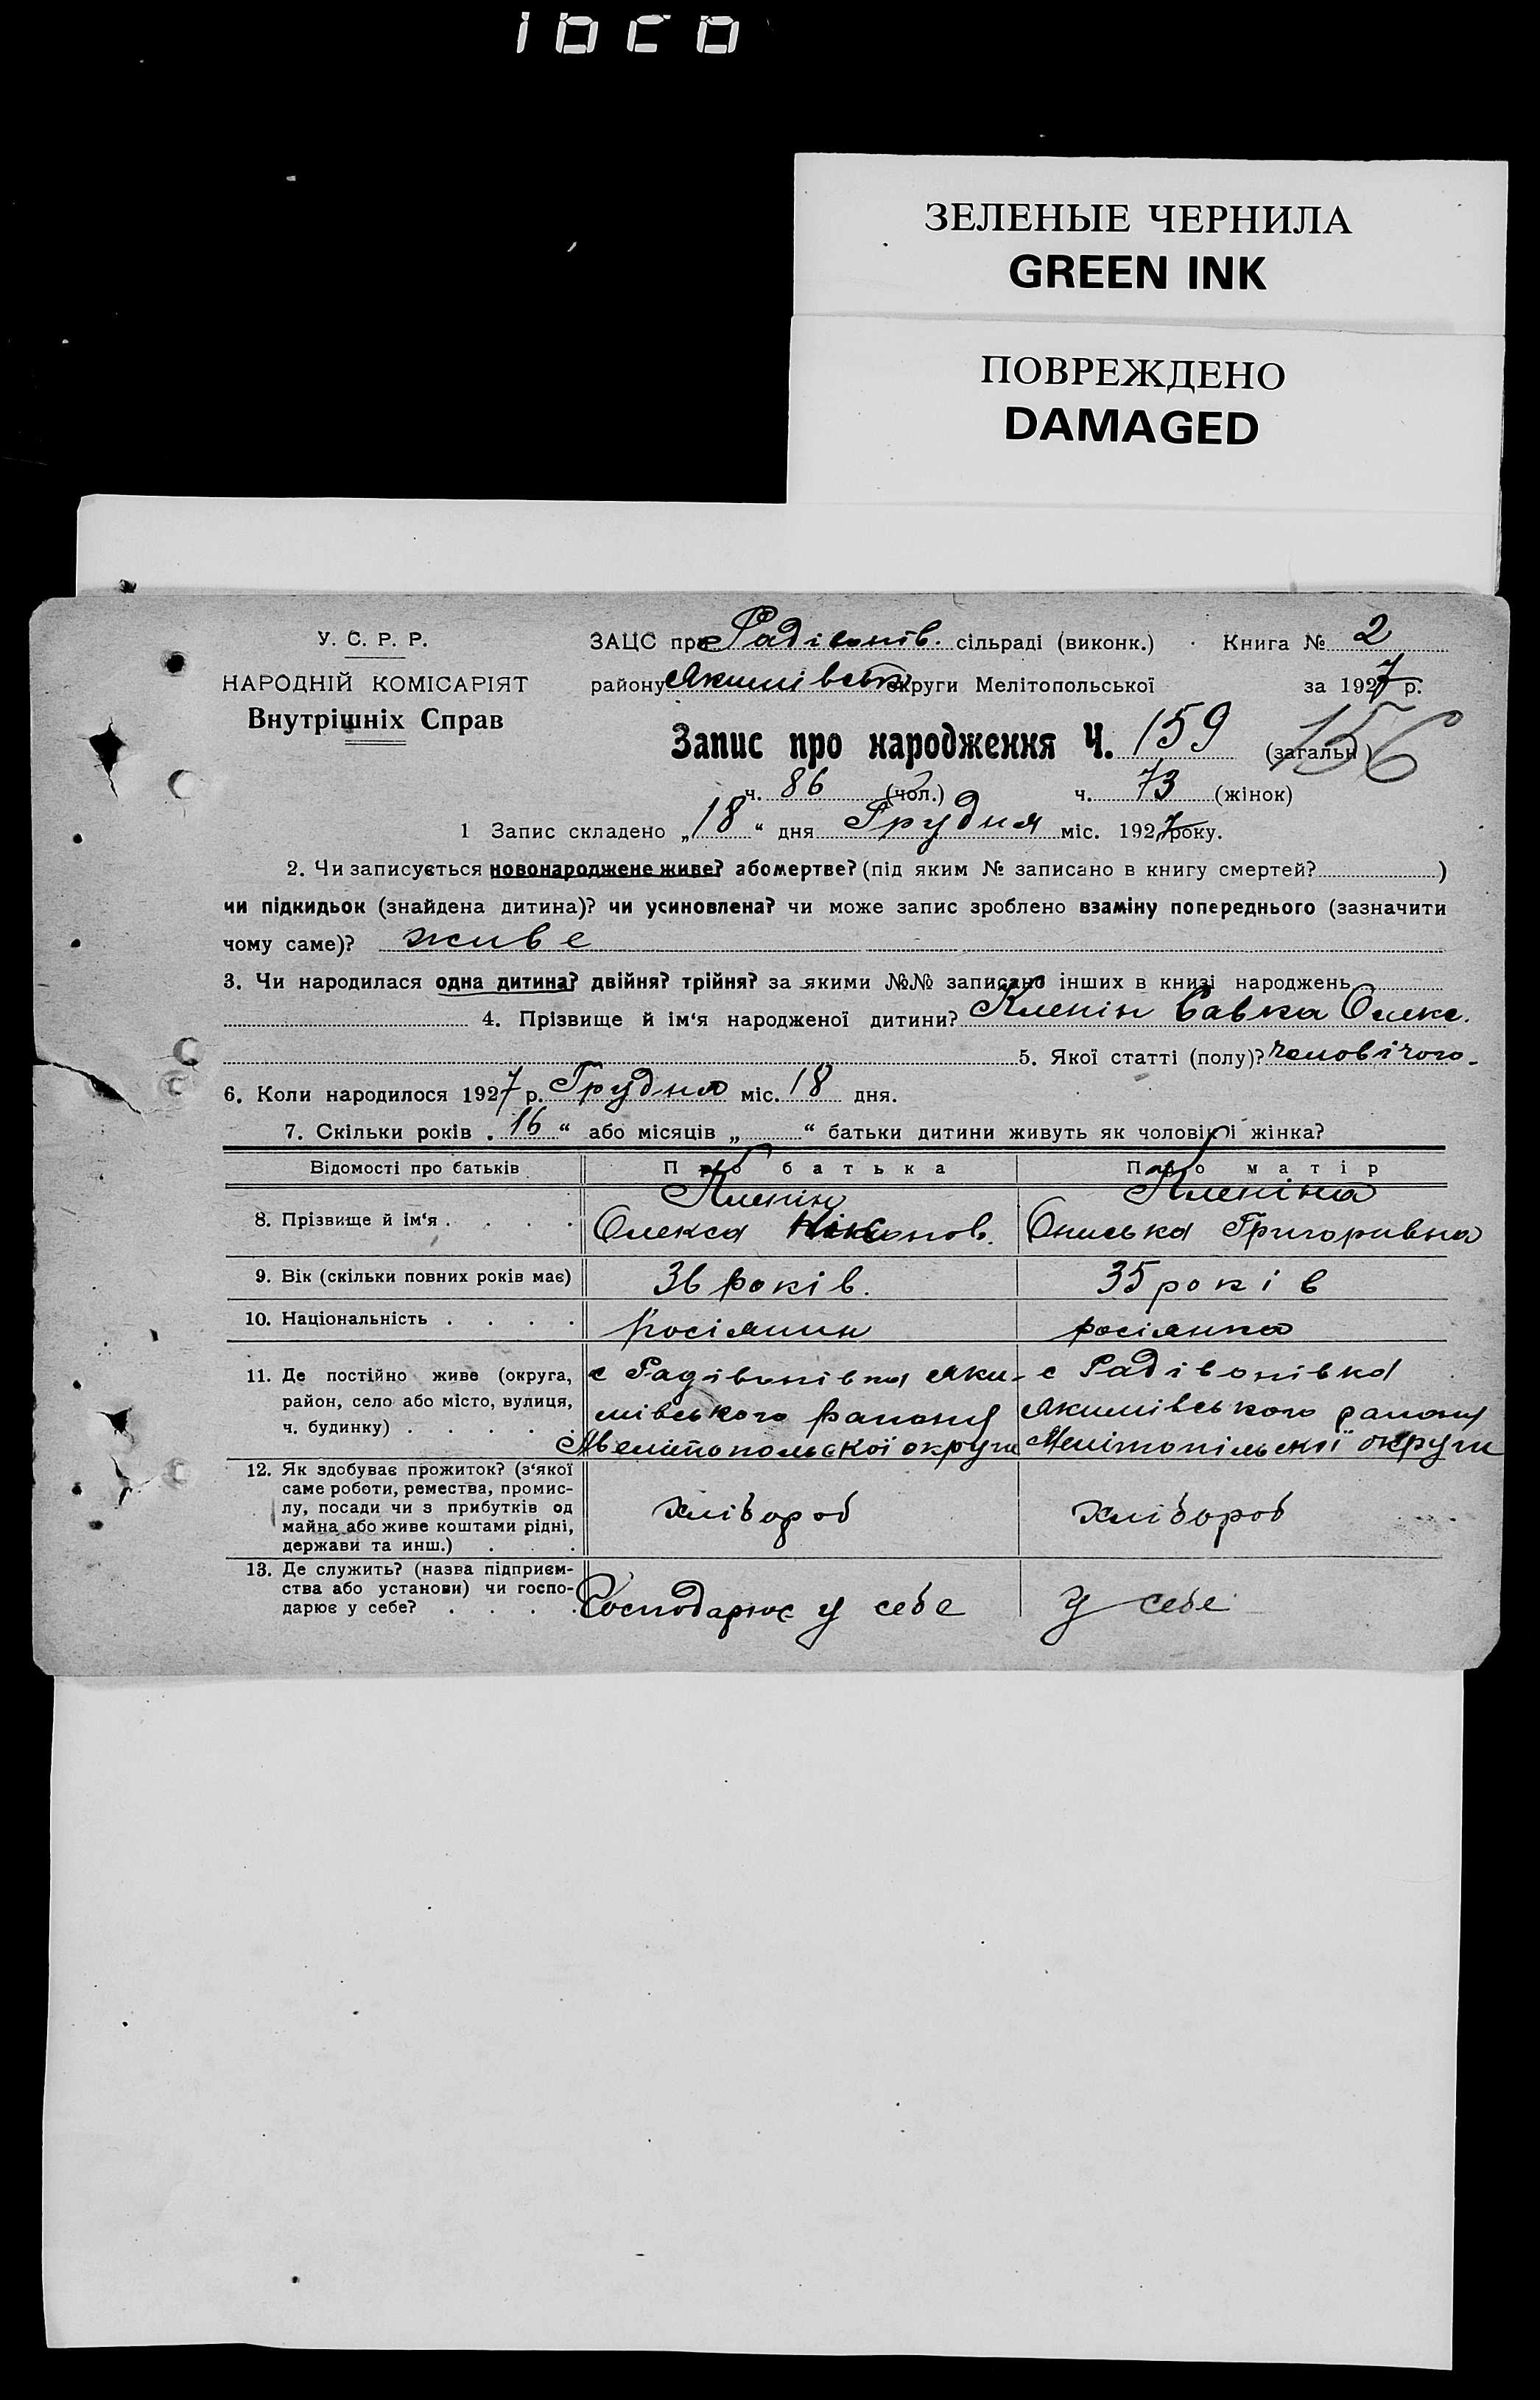 ЗЕЛЕНЫЕ ЧЕРНИЛА
GREEN INK
ПОВРЕЖДЕНО
DAMAGED
У. С. Р. Р.
НАРОДНІЙ КОМІСАРІЯТ
Внутрішніх Справ
ЗАЦС при Радівонів. сільраді (виконк.) Книга № 2
району Якимівськ округи Мелітопольської за 1927 р.
Запис про народження Ч. 159 (загальн) 156
ч. 86 (чол.) ч. 73 (жінок)
1 Запис складено „18“ дня Грудня міс. 1927 року.
2. Чи записується новонароджене живе? або мертве? (під яким № записано в книгу смертей? )
чи підкидьок (знайдена дитина)? чи усиновлена? чи може запис зроблено взаміну попереднього (зазначити
чому саме)? живе
3. Чи народилася одна дитина? двійня? трійня? за якими №№ записано інших в книзі народжень
4. Прізвище й ім‘я народженої дитини? Кленін Савка Олекс.
5. Якої статті (полу)? чоловічого
6. Коли народилося 1927 р. Грудня міс. 18 дня.
7. Скільки років „16“ або місяців „ “ батьки дитини живуть як чоловік і жінка?
Відомості про батьків Про батька Про матір
8. Прізвище й ім‘я . . . . Кленін Олекса Ніконов. Кленіна Ониська Григоривна
9. Вік (скільки повних років має) 36 років. 35 років
10. Національність . . . . росіянин росіянка
11. Де постійно живе (округа,
район, село або місто, вулиця,
ч. будинку) . . . . .
с Радівонівка Яки-
мівського району
Мелітопольської округи
с Радівонівка
Якимівського району
Мелітопільскої округи
12. Як здобуває прожиток? (з‘якої
саме роботи, ремества, промис-
лу, посади чи з прибутків од
майна або живе коштами рідні,
держави та инш.) . . .
хлібороб хлібороб
13. Де служить? (назва підприєм-
ства або установи) чи госпо-
дарює у себе? . . . .
Господарює у себе у себе